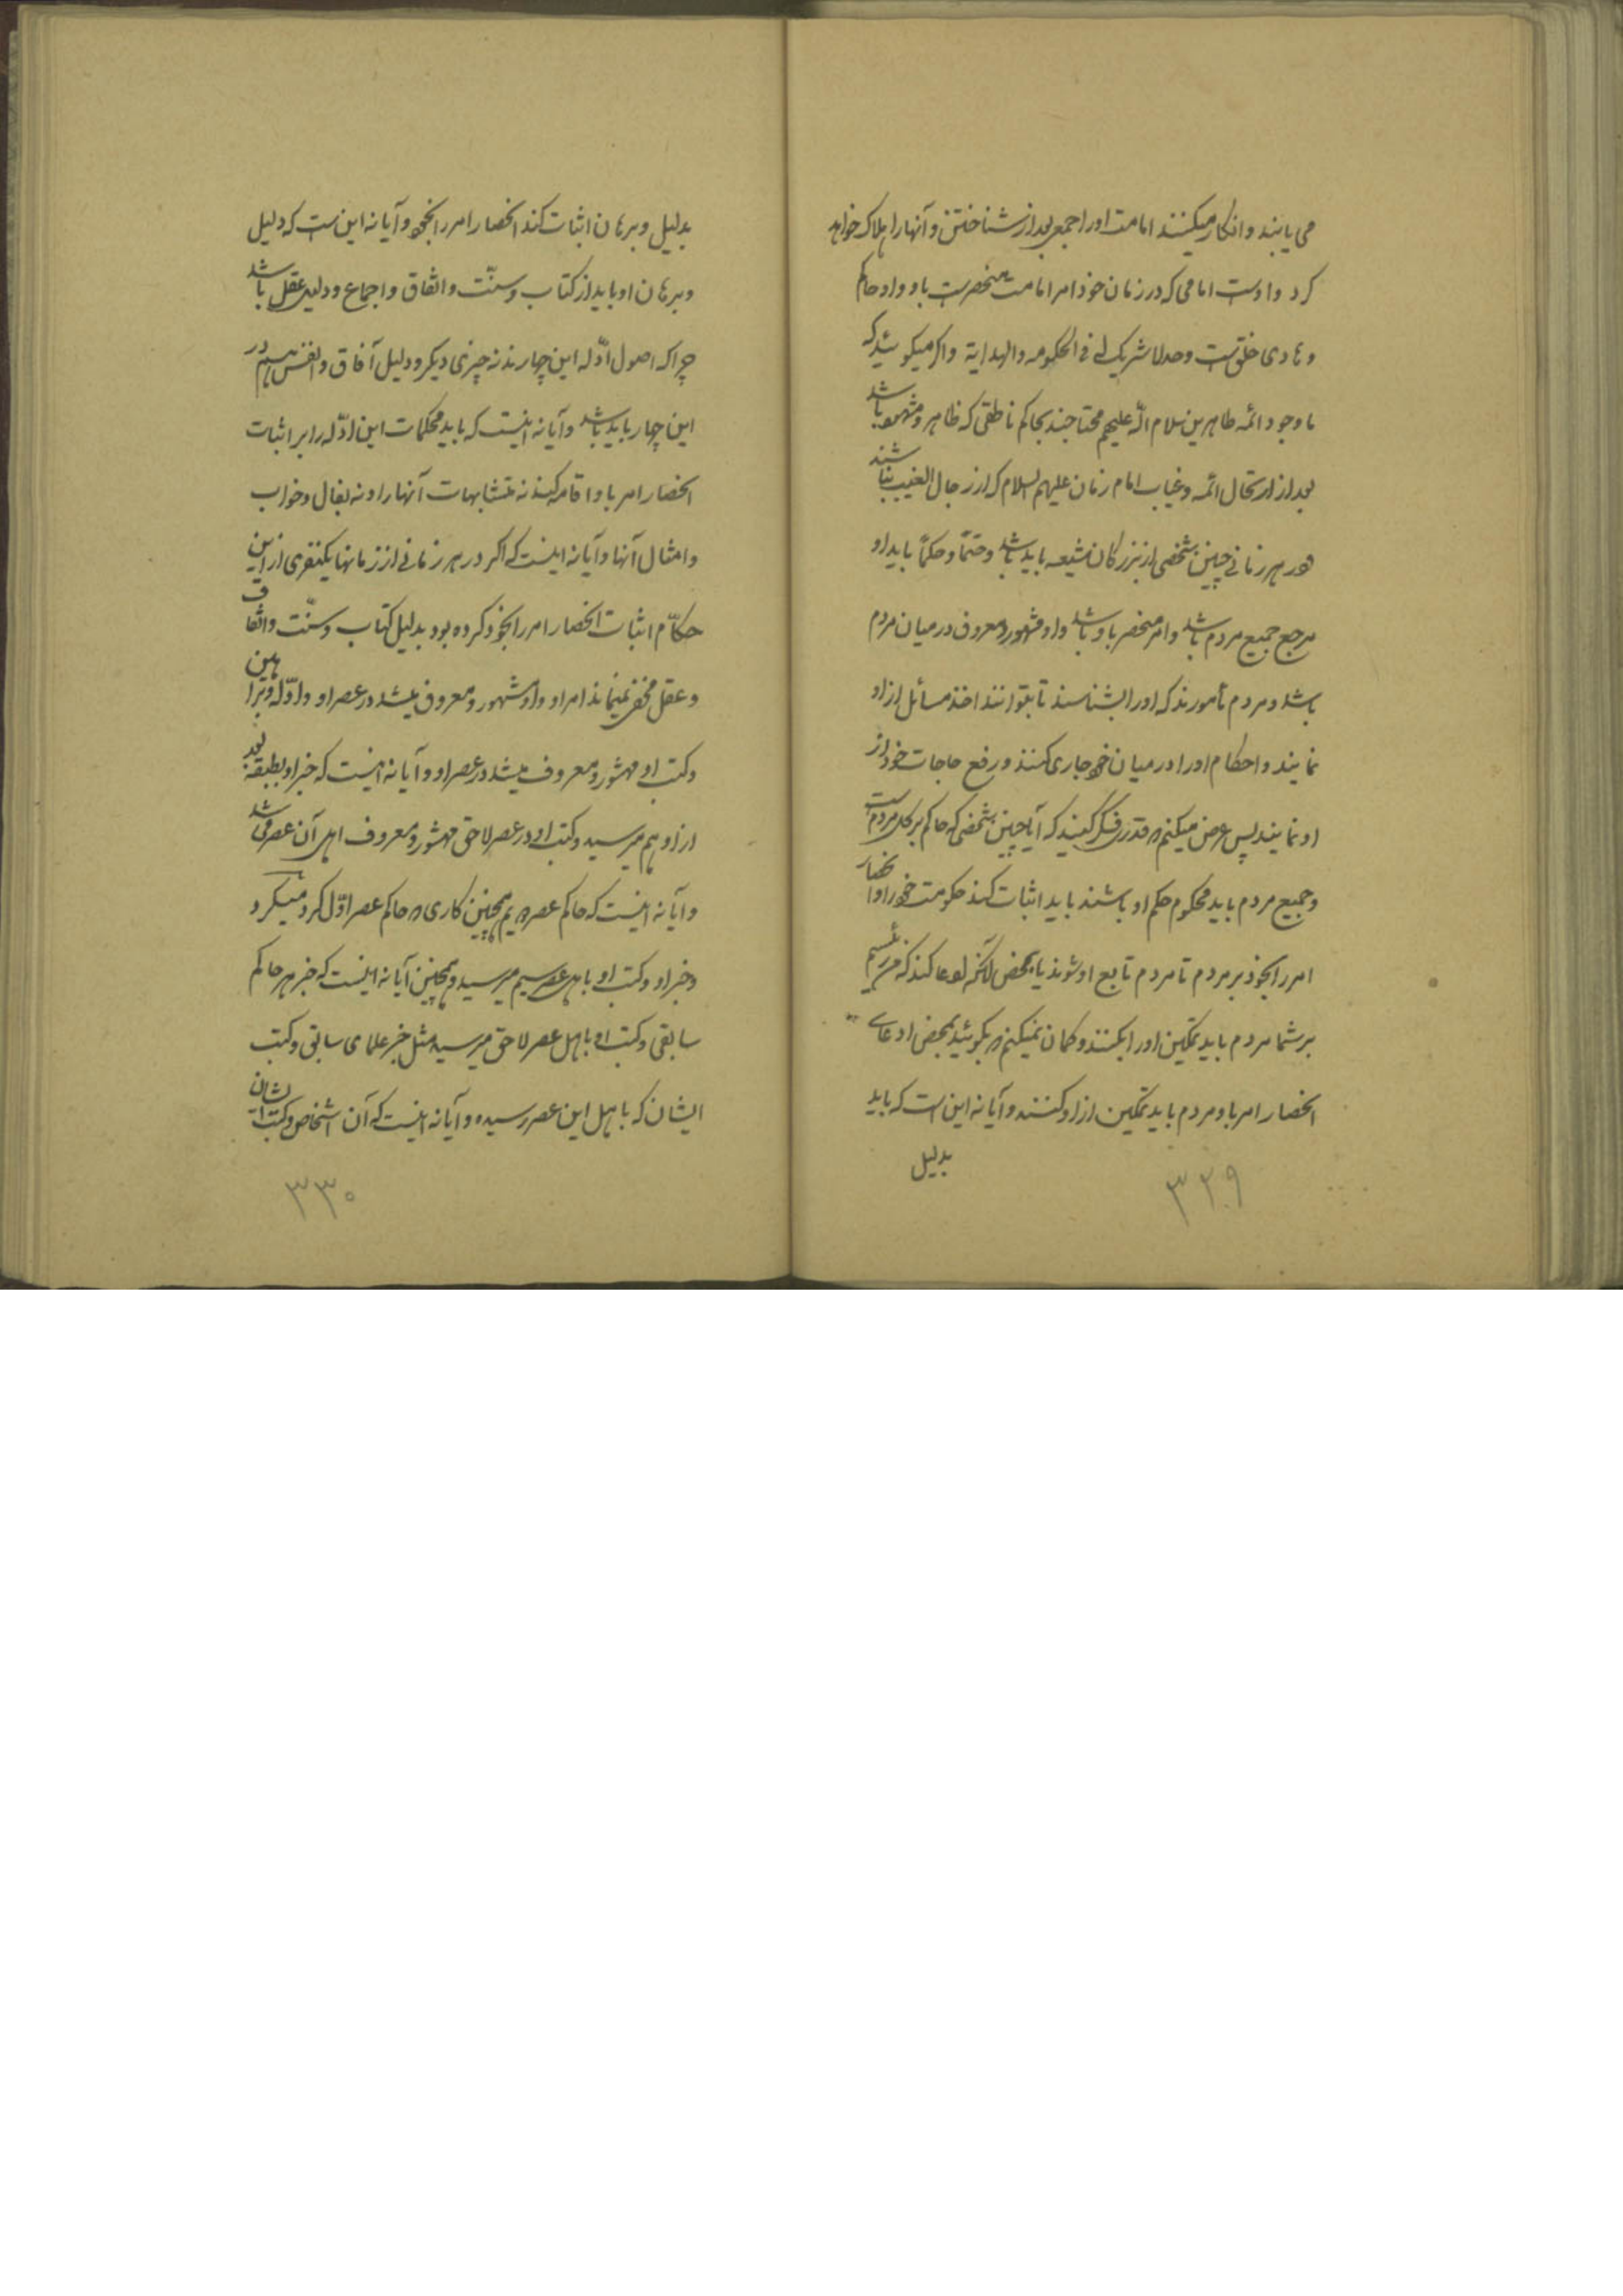 می یابند و انکار میکنند امامت او را جمعی بعد از شناختن و آنها را هلاک خواهد
کرد و اوست امامی که در زمان خود امر امامت منحصر است باو و او حاکم
و هادی خلق است وحده لا شریک له فی الحکومه والهدایة و اگر میگوئید که
با وجود ائمه طاهرین سلام الله علیهم محتاجند بحاکم ناطقی که ظاهر و مشهور باشد
بعد از ارتحال ائمه و غیاب امام زمان علیهم السلام که از رجال الغیب نباشند
در هر زمانی چنین شخصی از بزرگان شیعه باید باشد و حتماً و حکماً باید او
مرجع جمیع مردم باشد و امر منحصر باو باشد و او مشهور و معروف در میان مردم
باشد و مردم مأمورند که او را بشناسند تا بتوانند اخذ مسائل از او
نمایند و احکام او را در میان خود جاری کنند و رفع حاجات خود از
او نمایند پس عرض میکنم قدری فکر کنید که آیا چنین شخصی که حاکم بر کل مردم است
و جمیع مردم باید محکوم حکم او باشند باید اثبات کند حکومت خود را و انحصار
امر را بخود بر مردم تا مردم تابع او شوند یا بمحض آنکه ادعا کند که من رئیسم
بر شما مردم باید تمکین او را بکنند و گمان نمیکنم بگوئید بمحض ادعای
انحصار امر باو مردم باید تمکین از او کنند و آیا نه این است که باید
بدلیل
۳۲۹
بدلیل و برهان اثبات کند انحصار امر را بخود و آیا نه این است که دلیل
و برهان او باید از کتاب و سنّت و اتفاق و اجماع و دلیل عقل باشد
چرا که اصول ادّله این چهارند نه چیزی دیگر و دلیل آفاق و انفس هم در
این چهار باید باشد و آیا نه اینست که باید محکمات این ادّله را بر اثبات
انحصار امر باو اقامه کند نه متشابهات آنها را و نه بفال و خواب
و امثال آنها و آیا نه اینست که اگر در هر زمانی از زمانها یکنفری از این
حکّام اثبات انحصار امر را بخود کرده بود بدلیل کتاب و سنّت و اتفاق
و عقل مخفی نمیماند امر او و او مشهور و معروف میشد در عصر او و ادّله و براهین
و کتب او مشهور و معروف میشد در عصر او و آیا نه اینست که خبر او بطبقه بعد
از او هم میرسید و کتب او در عصر لاحق مشهور و معروف اهل آن عصر می شد
و آیا نه اینست که حاکم عصر دویم همچنین کاری که حاکم عصر اوّل کرد میکرد
و خبر او و کتب او باهل عصر سیم میرسید و همچنین آیا نه اینست که خبر هر حاکم
سابقی و کتب او باهل عصر لاحق میرسید مثل خبر علمای سابق و کتب
ایشان که باهل این عصر رسیده و آیا نه اینست که آن اشخاص و کتب ایشان
۳۳۰